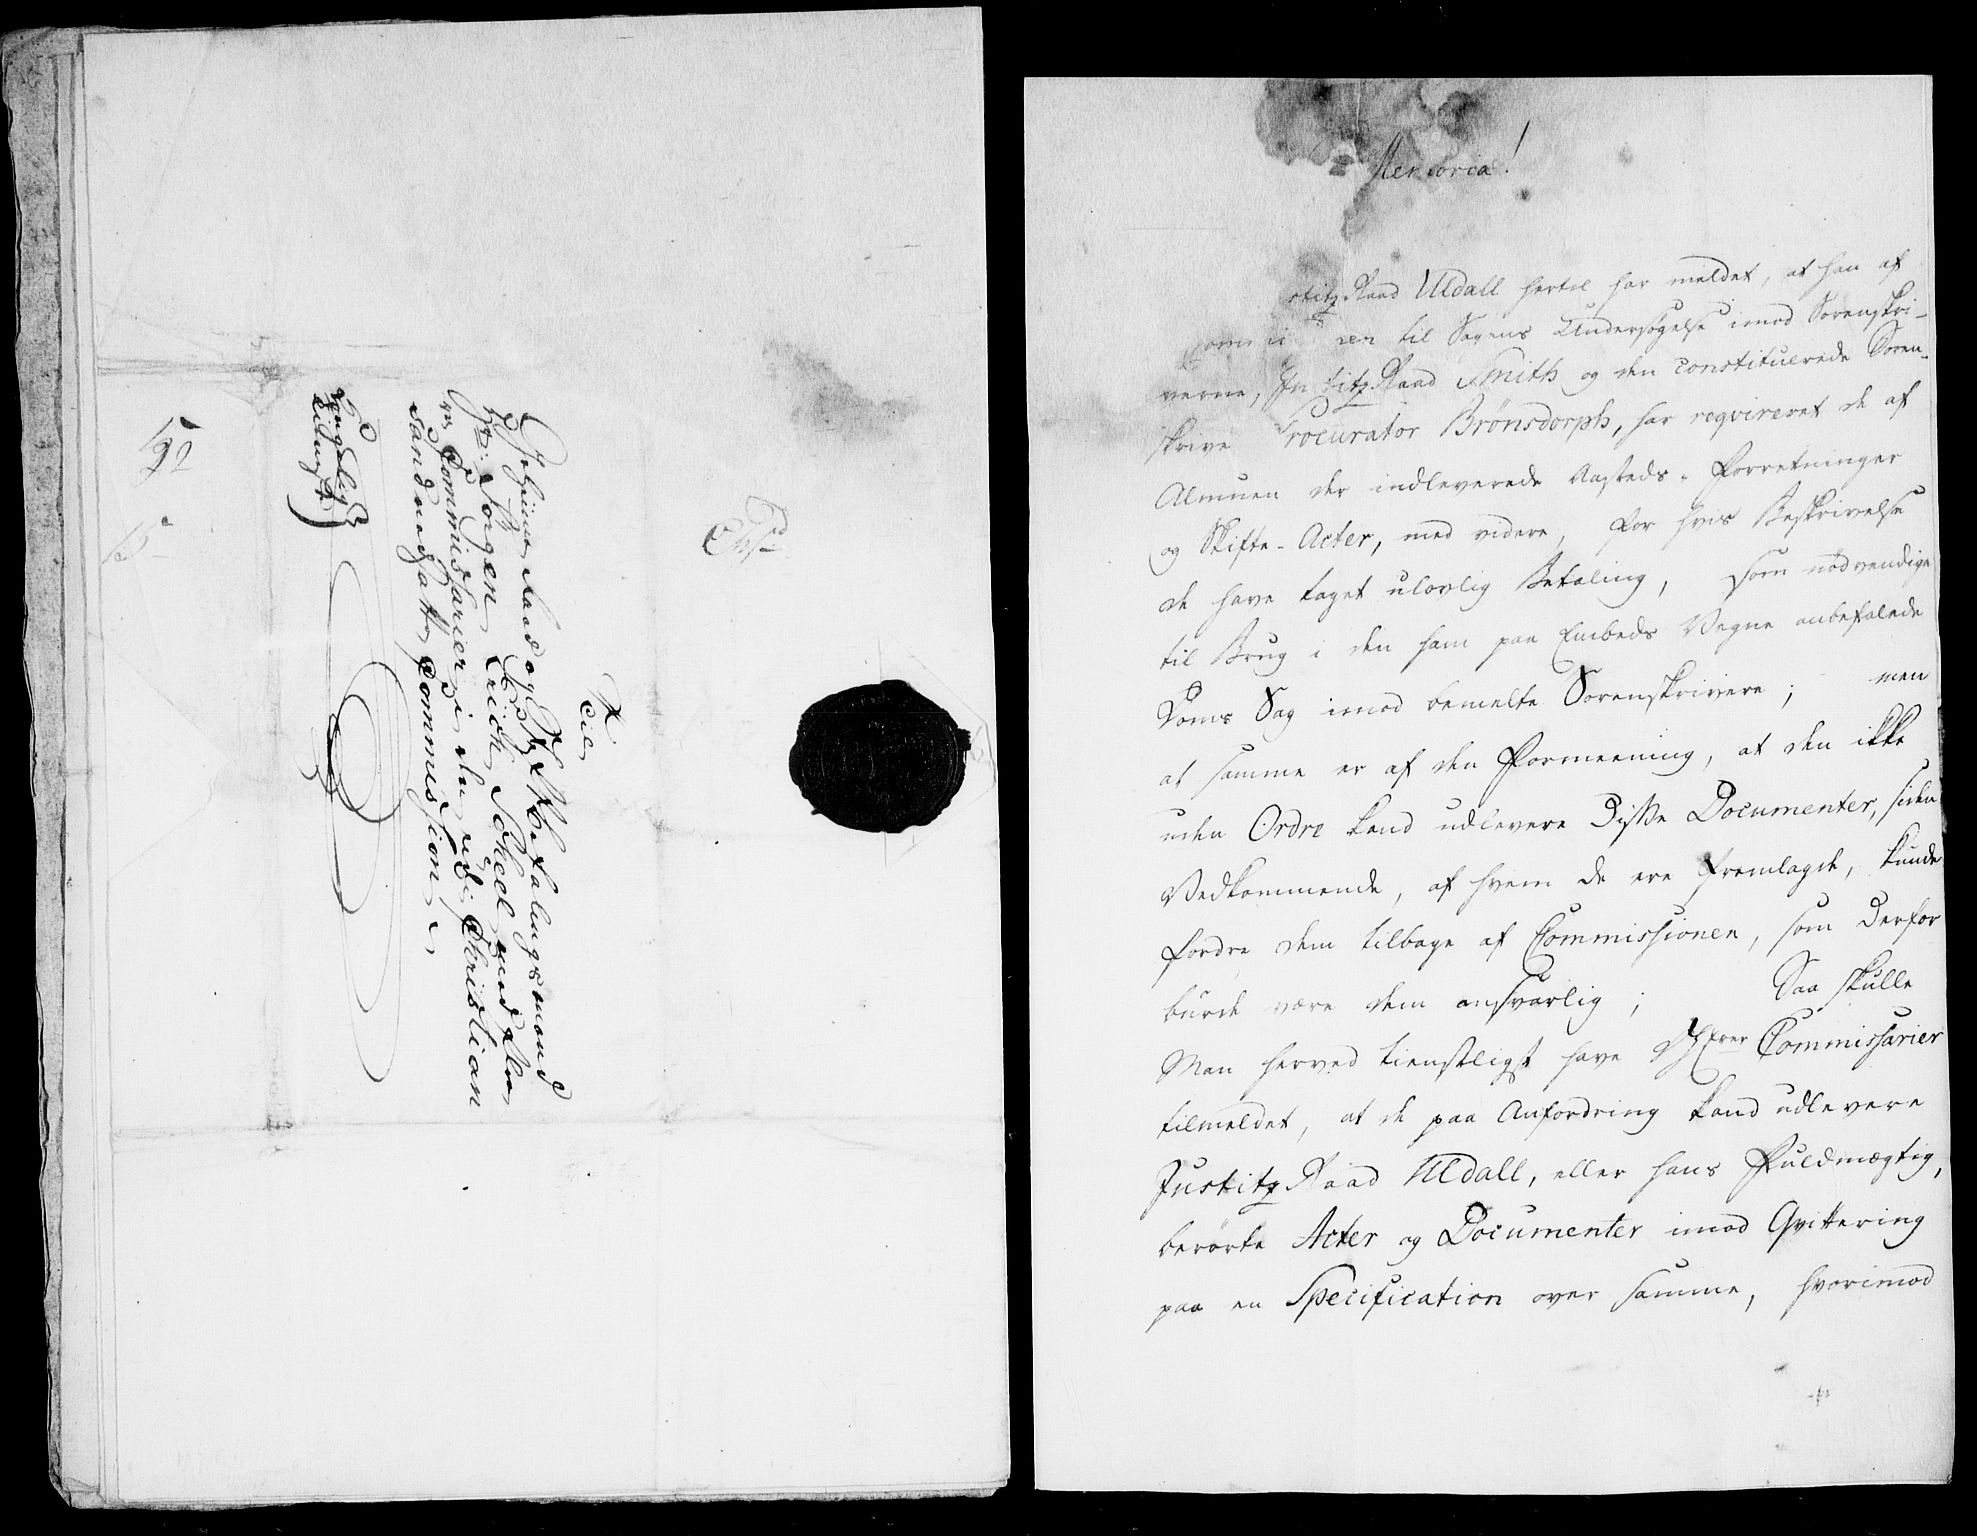 Til
Geheime Raad og Befalingsmand
Hr: Jørgen Erich Scheel med flere
Commissarier i den udi Christian
sandnedsatte Commission
192
Memoria!
Justitz Raad Uldall hertil har meldet, at han af
til Sagens Undersøgelse imod Sorenskri-
verne, Justitz Raad Smith og den constituerede Soren-
skrive Procurator Brönsdorph, har reqvireret de af
Almuen der indleverede Aasteds-Forretninger
og Skifte-Acter, med videre, for hvis Beskrivelse
de have taget ulovlig Betaling, som nødvendige
til Brug i den ham paa Embeds Vegne anbefalede
Doms Sag imod bemelte Sorenskrivere; men
at samme er af den Formeening, at den ikke
uden Ordre kand udlevere Disse Documenter, siden
Vedkommende, af hvem de ere fremlagde, kunde
fordre dem tilbage af Commissionen, som derfor
burde være dem ansvarlig; Saa skulle
Man herved tienstligst have Commissarier
tilmeldet, at de paa Anfordring kand udlevere
Justitz Raad Uldall, eller hans Fuldmægtig,
berørte Acter og Documenter imod Qvittering
paa en Specification over samme, hvorimod